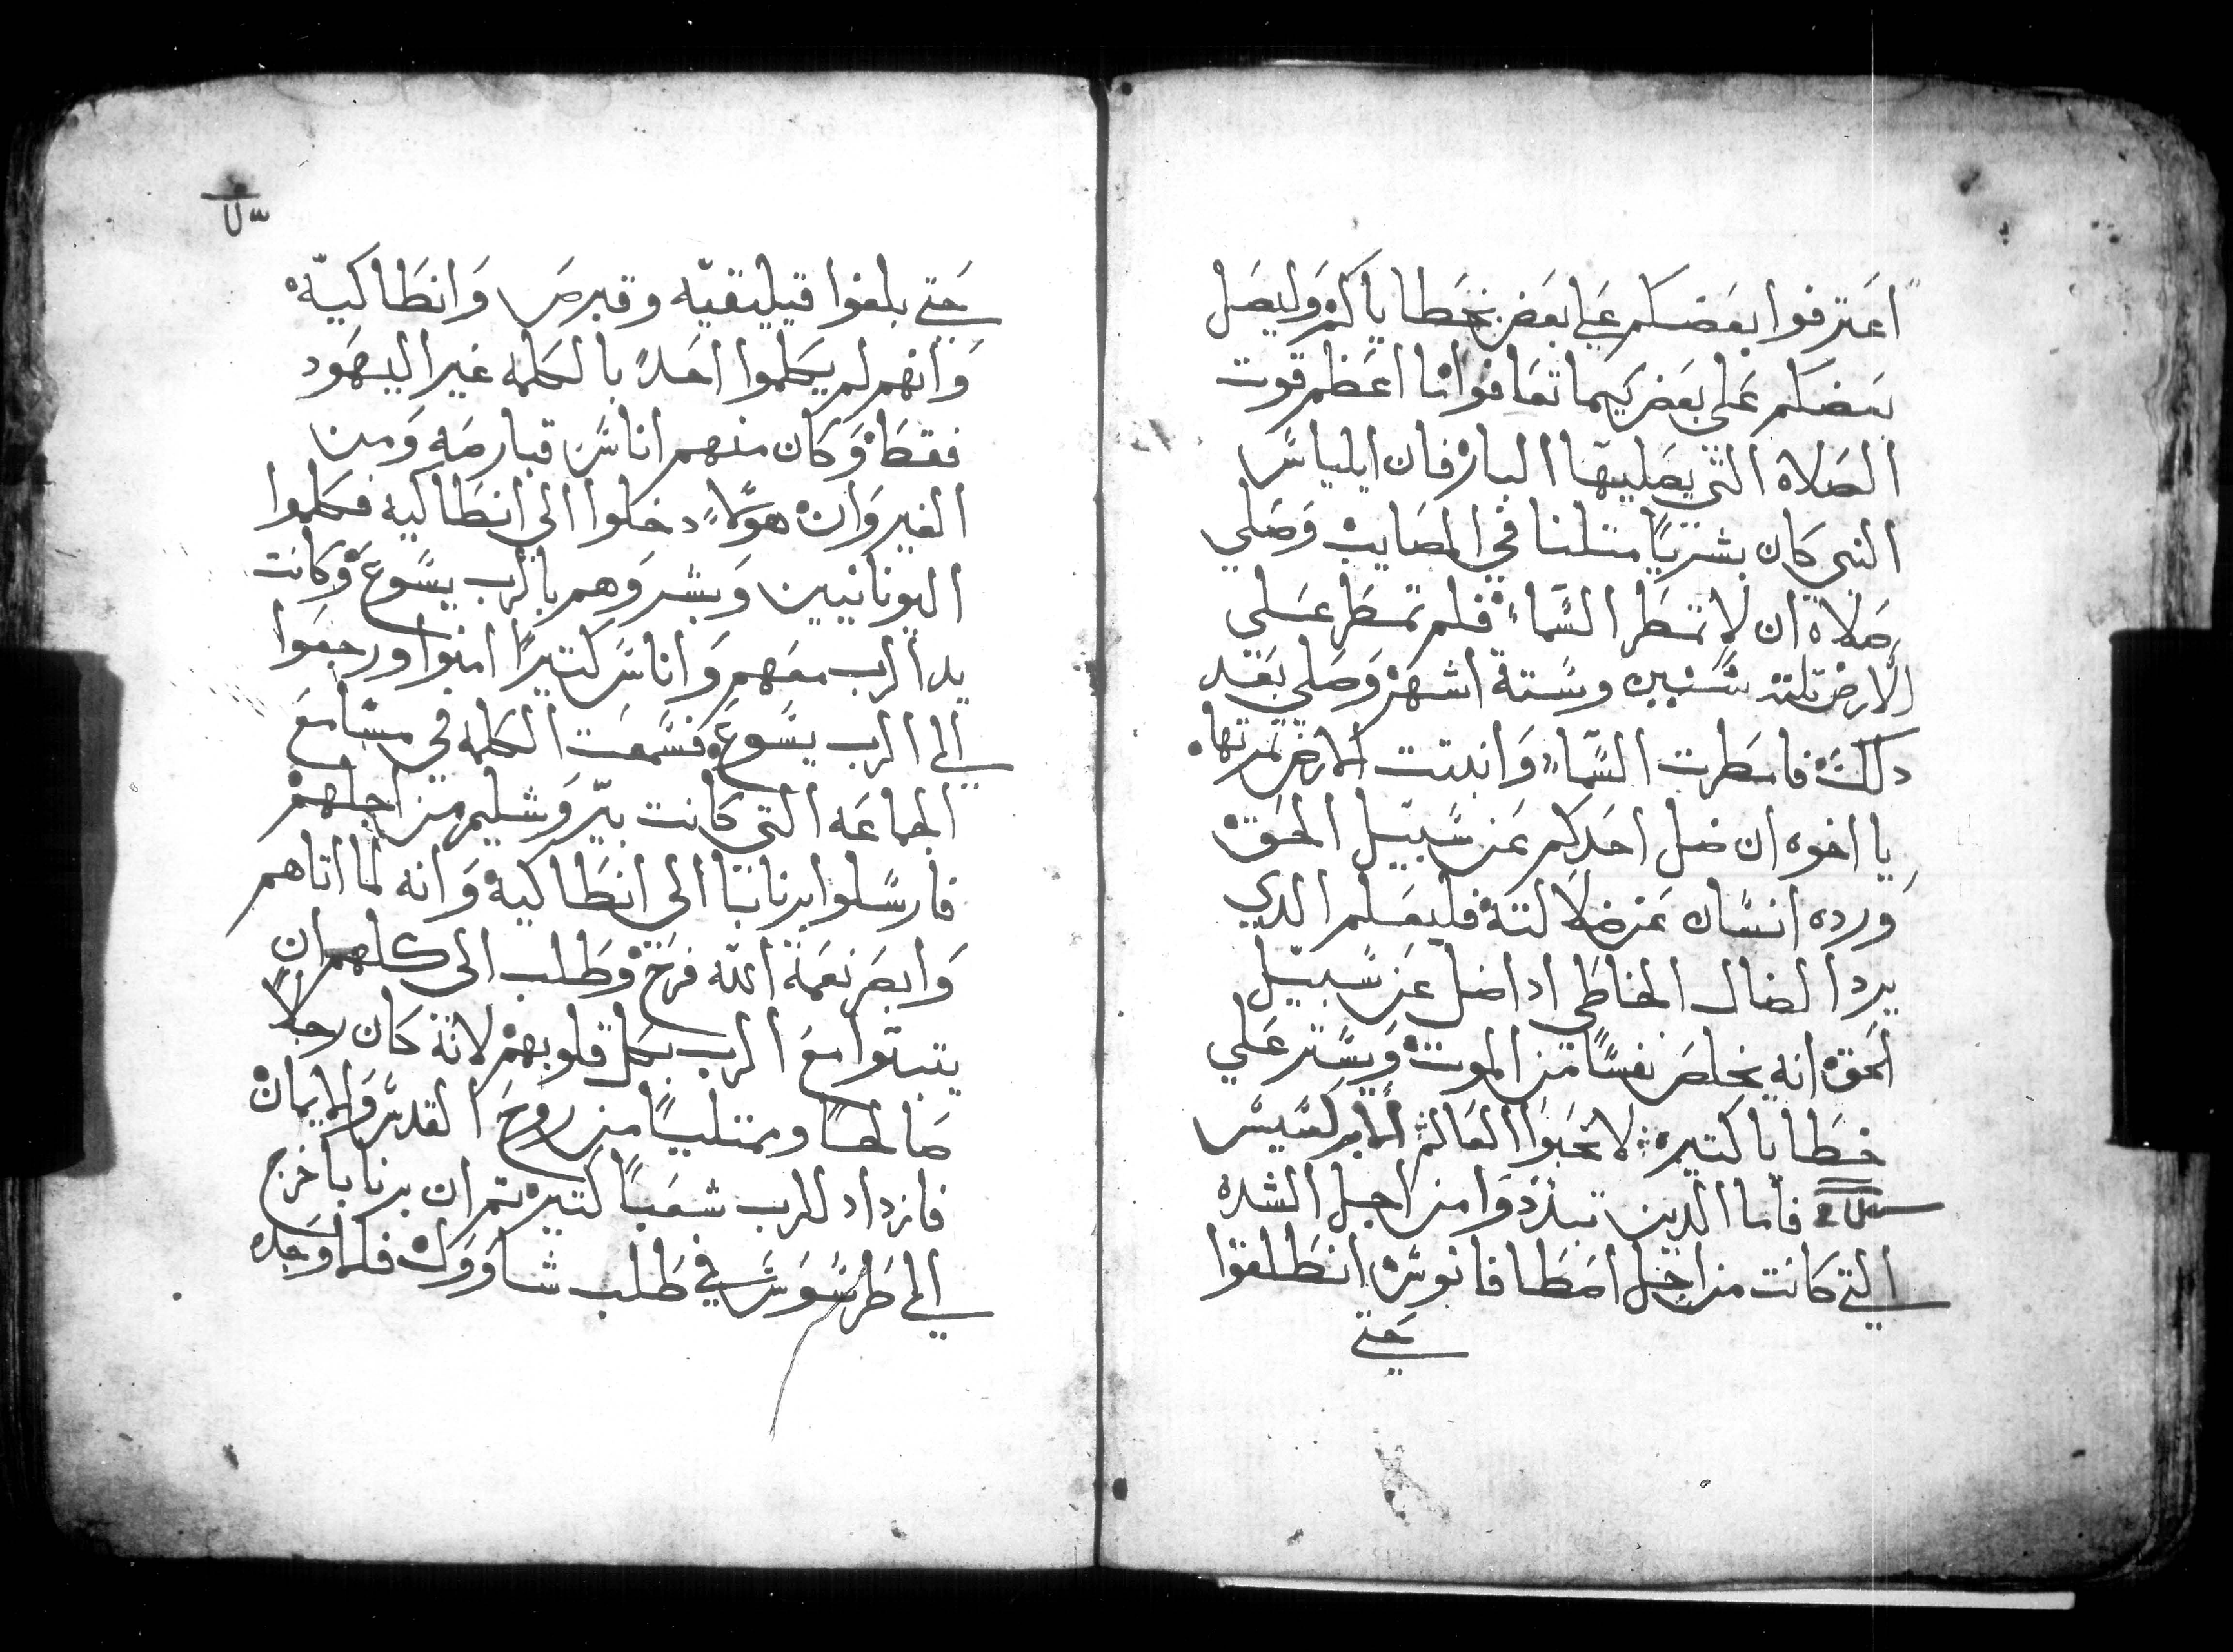 اعترفوا بعضكم علي بعض بخطاياكم وليصل
بعضكم علي بعض كيما تعافوا ما اعظم قوت
الصلاه التي يصليها البار فان ايلياس
النبي كان بشريًا متلنا في المصايب وصلي
صلاه ان لا تمطر السماء فلم تمطر علي
الارض تلته سنين وستة اشهر وصلي بعد
دلك فامطرت السماء وانبتت الارض تمرتها
يا اخوه ان ضل احدكم عن سبيل الحق
ورده انسان عن ضلالته فليعلم الدي
يرد الضال الخاطي ادا ضل عن سبيل
الحق انه يخلص نفسًا من الموت ويستر علي
خطايا كتيره لا تحبوا العالم الابركسيس
فاما الدين تبددوا من اجل الشده
التي كانت من اجل اصطافانوس انطلقوا
حتي
حتي بلغوا فيليقيّه وقبرص وانطاكيّه
وانهم لم يكلموا احدًا بالكلمه غير اليهود
فقط وكان منهم اناس قبارصه ومن
القيروان هولاء دخلوا الي انطاكيه فكلموا
اليونانيين وبشروهم بالرب يسوع وكانت
يد الرب معهم واناس كتيرًا امنوا ورجعوا
الي الرب يسوع فسمعت الكلمه في مسامع
الجماعه التي كانت بيروشليم من اجلهم
فارسلوا برنابا الى انطاكية وانه لما اتاهم
وابصر نعمة الله فرح وطلب الى كلهم ان
يتبتوا مع الرب بكل قلوبهم لانه كان رجلاً
صالحًا وممتليًا من روح القدس والايمان
فازداد للرب شعبًا كتيره تم ان برنابا خرج
الي طرسوس في طلب شاوول فلما وجده